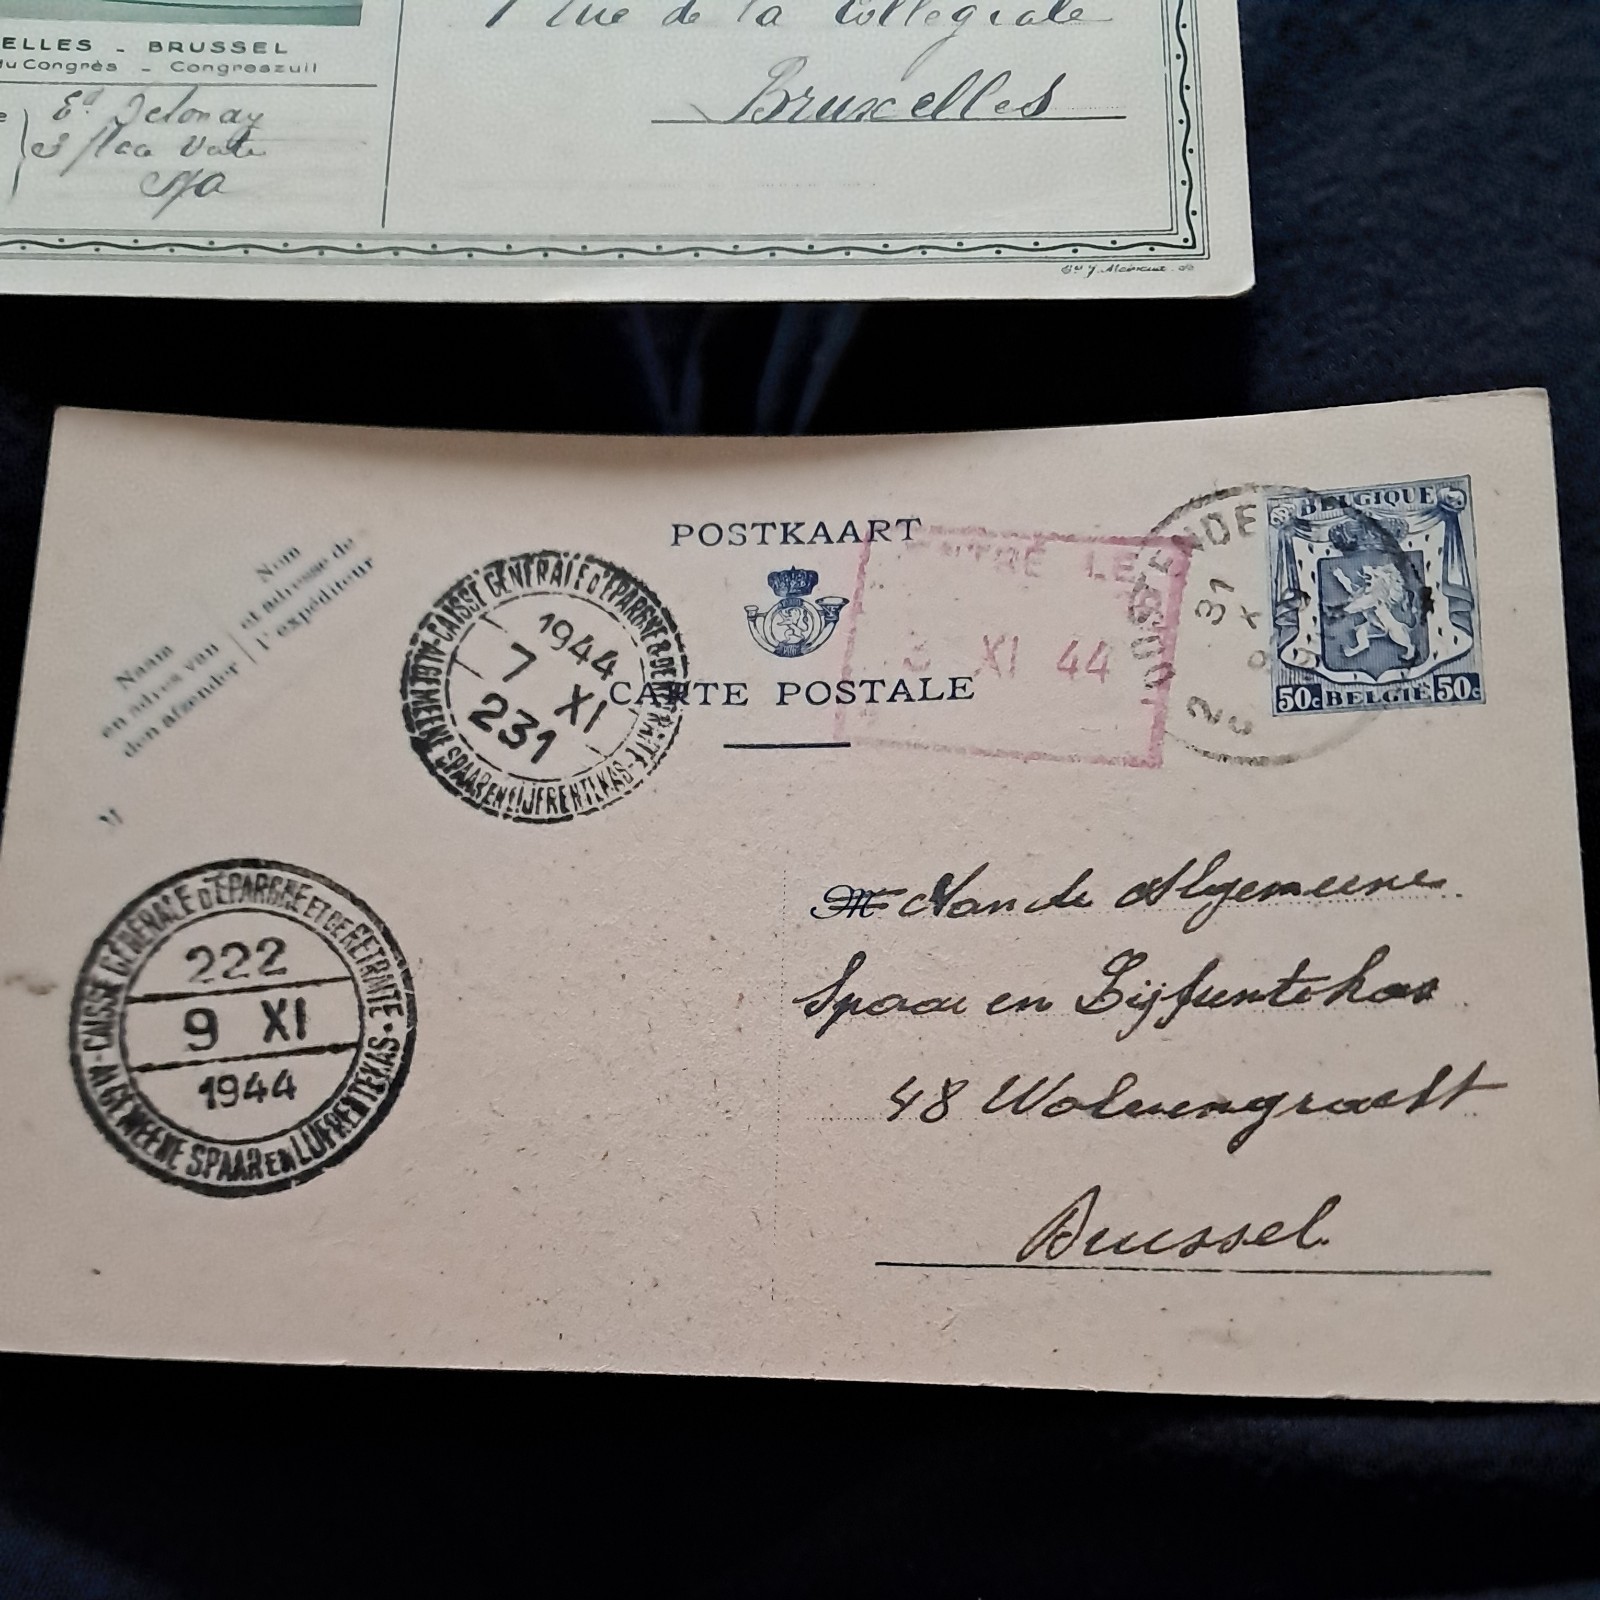 1 Rue de la Collégiale
Bruxelles
ELLES - BRUSSEL
du Congrès - Congreszuil
Ed Delonay
3 Place
Spa
POSTKAART
CARTE POSTALE
Nom
et adresse de
l'expéditeur
Naam
en adres van
den afzender
CAISSE GENERALE D'EPARGNE & DE RETRAITE - ALGEMEENE SPAAR EN LIJFRENTEKAS -
1944
7 XI
231
ENTRE LE
3 XI 44
OOSTENDE
31
X
2
BELGIQUE
50c BELGIE 50c
CAISSE GENERALE D'EPARGNE ET DE RETRAITE · ALGEMEENE SPAAR EN LIJFRENTEKAS ·
222
9 XI
1944
M Van de Algemeene
Spaar en Lijfrentekas
48 Wolvengracht
Brussel